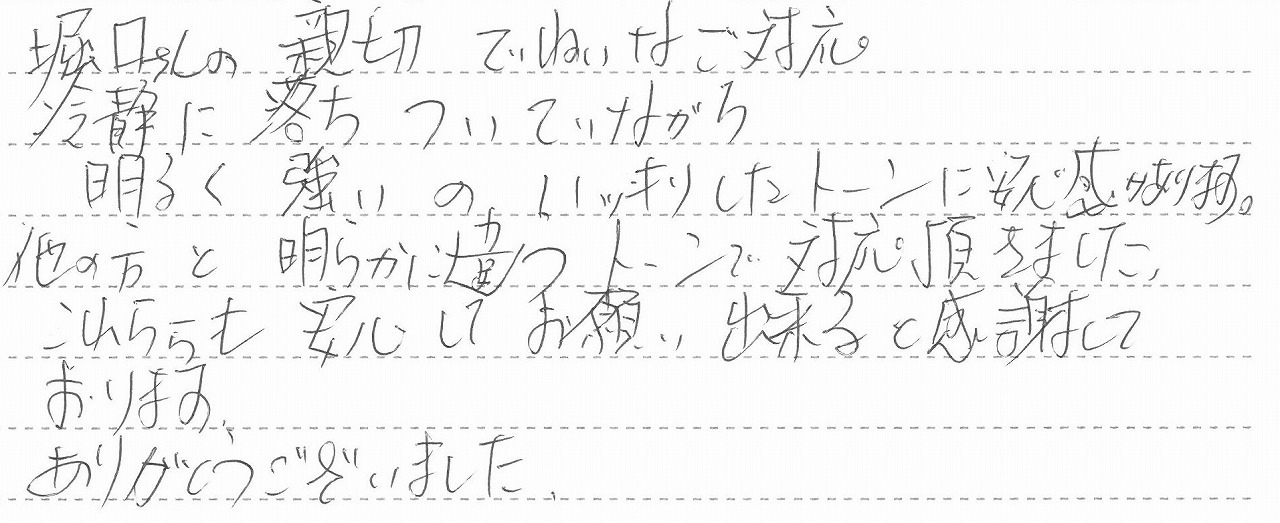 堀口さんの 親切 でいねいなご対応。
冷静に 落ち ついていながら
明るく 強い の ハッキリしたトーンに安心感があります。
他の方 と 明らかに違うトーンで 対応頂きました、
これららも 安心して お願い 出来ると感謝して
おります、
ありがとうございました、